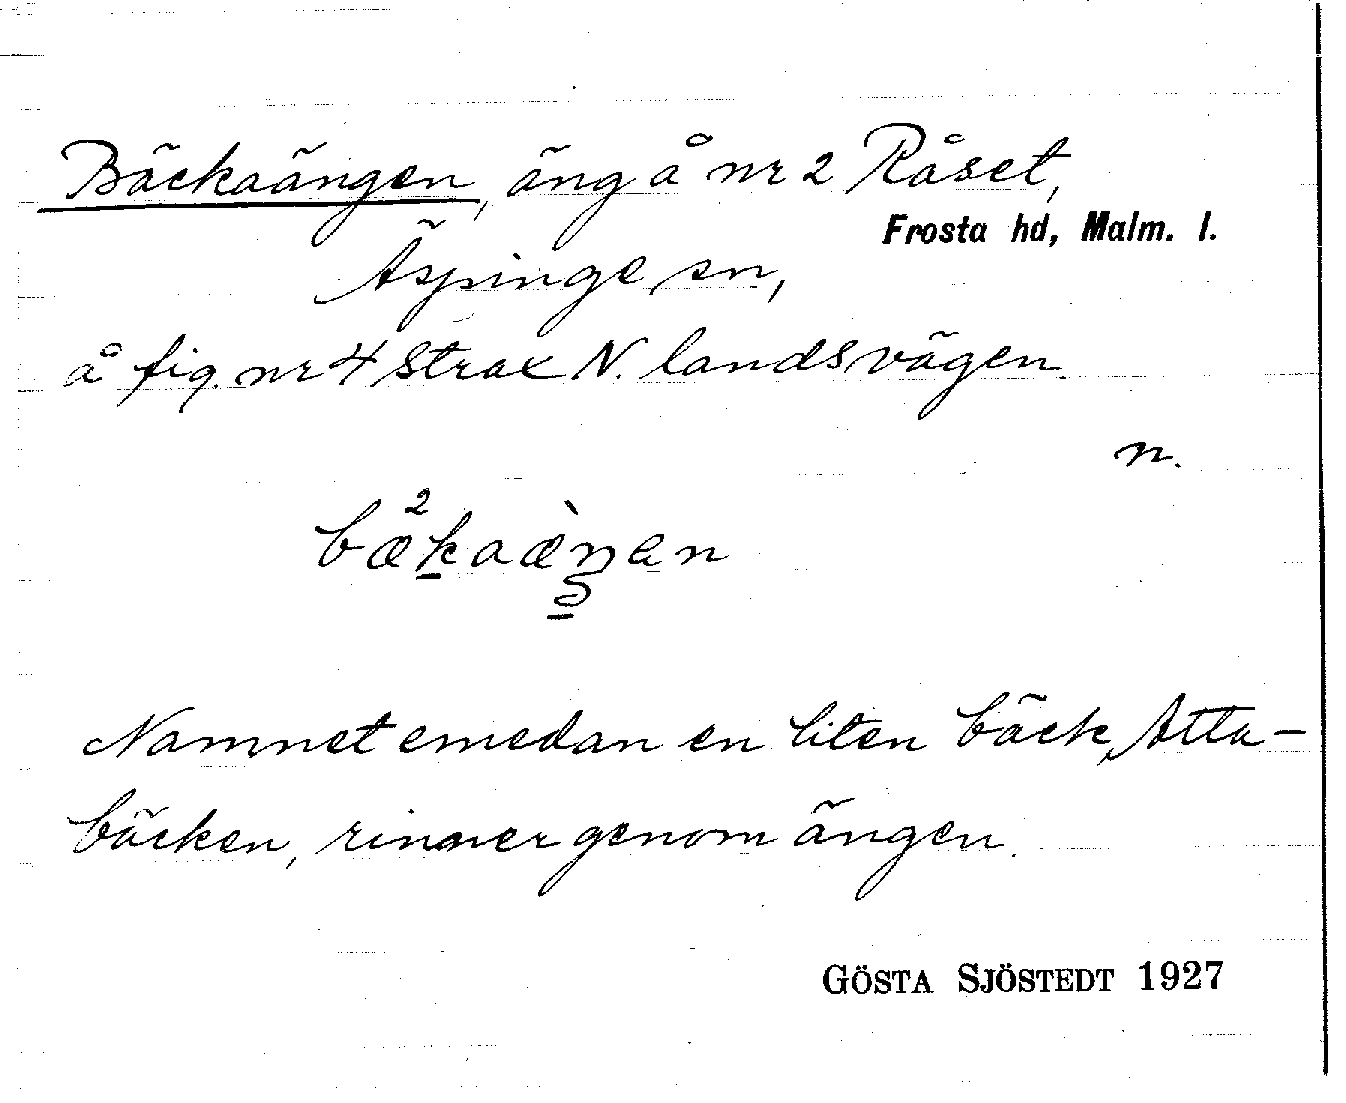 Bäckaängen, äng å nr 2 Råset,
Frosta hd, Malm. l.
Äspinge sn,
å fig. nr 4 strax N. landsvägen.
n.
bæ²kaæ̀ŋen
Namnet emedan en liten bäck, Atta-
bäcken, rinner genom ängen.
GÖSTA SJÖSTEDT 1927